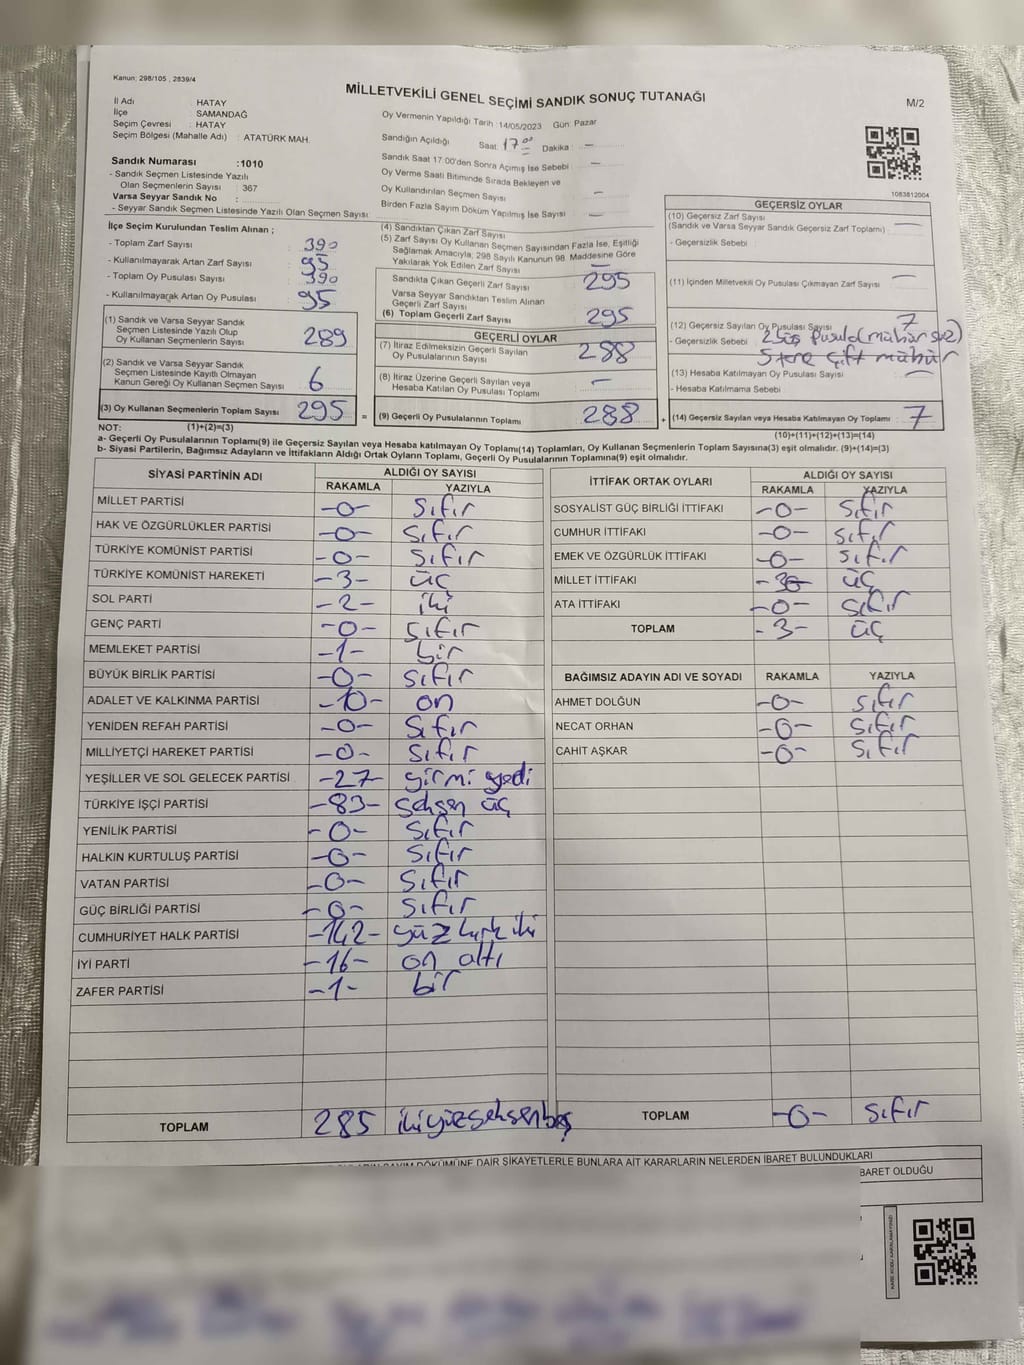 Kanun; 298/105 , 2839/4
MİLLETVEKİLİ GENEL SEÇİMİ SANDIK SONUÇ TUTANAĞI
M/2
İl Adı : HATAY
İlçe : SAMANDAĞ
Seçim Çevresi : HATAY
Seçim Bölgesi (Mahalle Adı) : ATATÜRK MAH.
Sandık Numarası :1010
- Sandık Seçmen Listesinde Yazılı
Olan Seçmenlerin Sayısı : 367
Varsa Seyyar Sandık No :
- Seyyar Sandık Seçmen Listesinde Yazılı Olan Seçmen Sayısı:
Oy Vermenin Yapıldığı Tarih :14/05/2023 Gün: Pazar
Sandığın Açıldığı Saat: 17 00 Dakika : —
Sandık Saat 17:00'den Sonra Açımış İse Sebebi : —
Oy Verme Saati Bitiminde Sırada Bekleyen ve
Oy Kullandırılan Seçmen Sayısı : —
Birden Fazla Sayım Döküm Yapılmış İse Sayısı : —
1083812004
İlçe Seçim Kurulundan Teslim Alınan ;
- Toplam Zarf Sayısı : 390
- Kullanılmayarak Artan Zarf Sayısı : 95
- Toplam Oy Pusulası Sayısı : 390
- Kullanılmayarak Artan Oy Pusulası : 95
(1) Sandık ve Varsa Seyyar Sandık
Seçmen Listesinde Yazılı Olup
Oy Kullanan Seçmenlerin Sayısı : 289
(2) Sandık ve Varsa Seyyar Sandık
Seçmen Listesinde Kayıtlı Olmayan
Kanun Gereği Oy Kullanan Seçmen Sayısı : 6
(3) Oy Kullanan Seçmenlerin Toplam Sayısı : 295
(4) Sandıktan Çıkan Zarf Sayısı :
(5) Zarf Sayısı Oy Kullanan Seçmen Sayısından Fazla İse, Eşitliği
Sağlamak Amacıyla; 298 Sayılı Kanunun 98. Maddesine Göre
Yakılarak Yok Edilen Zarf Sayısı : —
Sandıkta Çıkan Geçerli Zarf Sayısı : 295
Varsa Seyyar Sandıktan Teslim Alınan
Geçerli Zarf Sayısı :
(6) Toplam Geçerli Zarf Sayısı : 295
GEÇERLİ OYLAR
(7) İtiraz Edilmeksizin Geçerli Sayılan
Oy Pusulalarının Sayısı : 288
(8) İtiraz Üzerine Geçerli Sayılan veya
Hesaba Katılan Oy Pusulası Toplamı : —
= (9) Geçerli Oy Pusulalarının Toplamı : 288
GEÇERSİZ OYLAR
(10) Geçersiz Zarf Sayısı
(Sandık ve Varsa Seyyar Sandık Geçersiz Zarf Toplamı) : —
- Geçersizlik Sebebi :
(11) İçinden Milletvekili Oy Pusulası Çıkmayan Zarf Sayısı : —
(12) Geçersiz Sayılan Oy Pusulası Sayısı : 7
- Geçersizlik Sebebi : 2 boş pusula (mühürsüz)
5 tane çift mühür
(13) Hesaba Katılmayan Oy Pusulası Sayısı : —
- Hesaba Katılmama Sebebi :
+ (14) Geçersiz Sayılan veya Hesaba Katılmayan Oy Toplamı : 7
NOT: (1)+(2)=(3)
(10)+(11)+(12)+(13)=(14)
a- Geçerli Oy Pusulalarının Toplamı(9) ile Geçersiz Sayılan veya Hesaba katılmayan Oy Toplamı(14) Toplamları, Oy Kullanan Seçmenlerin Toplam Sayısına(3) eşit olmalıdır. (9)+(14)=(3)
b- Siyasi Partilerin, Bağımsız Adayların ve İttifakların Aldığı Ortak Oyların Toplamı, Geçerli Oy Pusulalarının Toplamına(9) eşit olmalıdır.
SİYASİ PARTİNİN ADI ALDIĞI OY SAYISI
RAKAMLA YAZIYLA
MİLLET PARTİSİ -0- sıfır
HAK VE ÖZGÜRLÜKLER PARTİSİ -0- sıfır
TÜRKİYE KOMÜNİST PARTİSİ -0- sıfır
TÜRKİYE KOMÜNİST HAREKETİ -3- üç
SOL PARTİ -2- iki
GENÇ PARTİ -0- sıfır
MEMLEKET PARTİSİ -1- bir
BÜYÜK BİRLİK PARTİSİ -0- sıfır
ADALET VE KALKINMA PARTİSİ -10- on
YENİDEN REFAH PARTİSİ -0- sıfır
MİLLİYETÇİ HAREKET PARTİSİ -0- sıfır
YEŞİLLER VE SOL GELECEK PARTİSİ -27- yirmi yedi
TÜRKİYE İŞÇİ PARTİSİ -83- seksen üç
YENİLİK PARTİSİ -0- sıfır
HALKIN KURTULUŞ PARTİSİ -0- sıfır
VATAN PARTİSİ -0- sıfır
GÜÇ BİRLİĞİ PARTİSİ -0- sıfır
CUMHURİYET HALK PARTİSİ -142- yüz kırk iki
İYİ PARTİ -16- on altı
ZAFER PARTİSİ -1- bir
TOPLAM 285 ikiyüzseksenbeş
İTTİFAK ORTAK OYLARI ALDIĞI OY SAYISI
RAKAMLA YAZIYLA
SOSYALİST GÜÇ BİRLİĞİ İTTİFAKI -0- sıfır
CUMHUR İTTİFAKI -0- sıfır
EMEK VE ÖZGÜRLÜK İTTİFAKI -0- sıfır
MİLLET İTTİFAKI -3- üç
ATA İTTİFAKI -0- sıfır
TOPLAM -3- üç
BAĞIMSIZ ADAYIN ADI VE SOYADI RAKAMLA YAZIYLA
AHMET DOLĞUN -0- sıfır
NECAT ORHAN -0- sıfır
CAHİT AŞKAR -0- sıfır
TOPLAM -0- sıfır
SAYIM DÖKÜMÜNE DAİR ŞİKAYETLERLE BUNLARA AİT KARARLARIN NELERDEN İBARET BULUNDUKLARI
BARET OLDUĞU